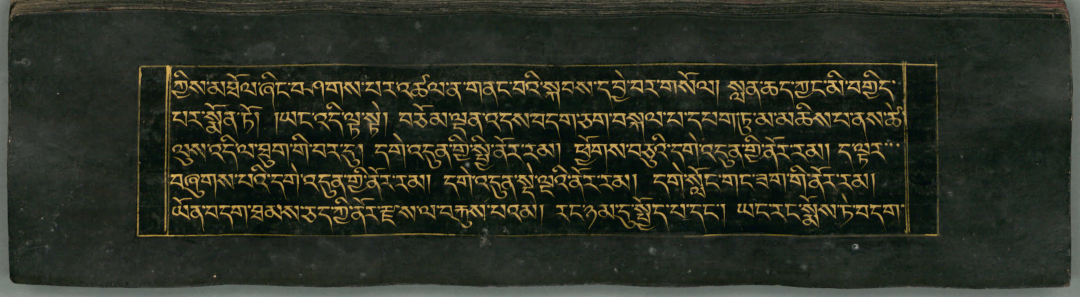 ཀྱིས་མ་ཐོལ་ཞིང་བཤགས་པར་འཚལ་ན་གནང་བའི་སྐབས་ད་བྱེ་བར་གསོལ། སླན་ཆད་ཀྱང་མི་བགྱིད་
པར་སྨོན་ཏོ། །ཡང་འདི་ལྟ་སྟེ། བཅོམ་ལྡན་འདས་བདག་ཅག་བསྐལ་པ་དཔག་ཏུ་མ་མཆིས་པ་ནས་ཚེ་
ལུས་འདི་ལ་ཐུག་གི་བར་དུ། དགེ་འདུན་གྱི་སྤྱི་ནོར་རམ། ཕྱོགས་བཅུའི་དགེ་འདུན་གྱི་ནོར་རམ། ད་ལྟར་
བཞུགས་པའི་དགེ་འདུན་གྱི་ནོར་རམ། དགེ་འདུན་སྡེ་ལྔའི་ནོར་རམ། དགེ་སློང་གང་ཟག་གི་ནོར་རམ།
ཡོན་བདག་ཐམས་ཅད་ཀྱི་ནོར་རྫ་ས་ལ་བརྐུས་པའམ། རང་ཉམ་དུ་སྤྱོད་པ་དང་། ཡང་རང་སྨོས་ཏེ་བདག་